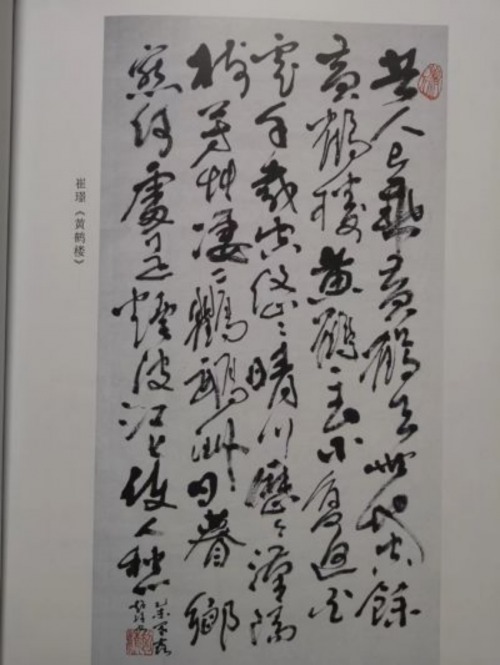 昔人已乘黄鶴去此地空餘
黄鶴樓黄鶴一去不復返白
雲千載空悠々晴川歷々漢陽
樹芳草凄々鸚鵡洲日暮鄉
關何處是煙波江上使人愁
崔颢《黄鹤楼》